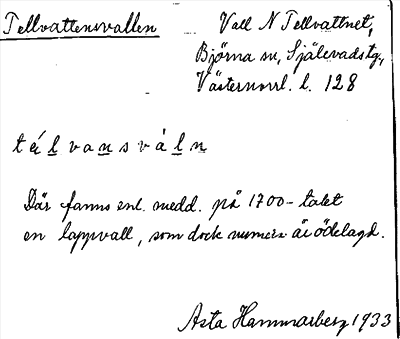 Tellvattensvallen
Vall N Tellvattnet,
Björna sn, Själevads tg,
Västernorrl. l. 128
té l̲ v a n̲ s v à l̲ n̲
Där fanns enl. medd. på 1700-talet
en lappvall, som dock numera är ödelagd.
Asta Hammarberg 1933